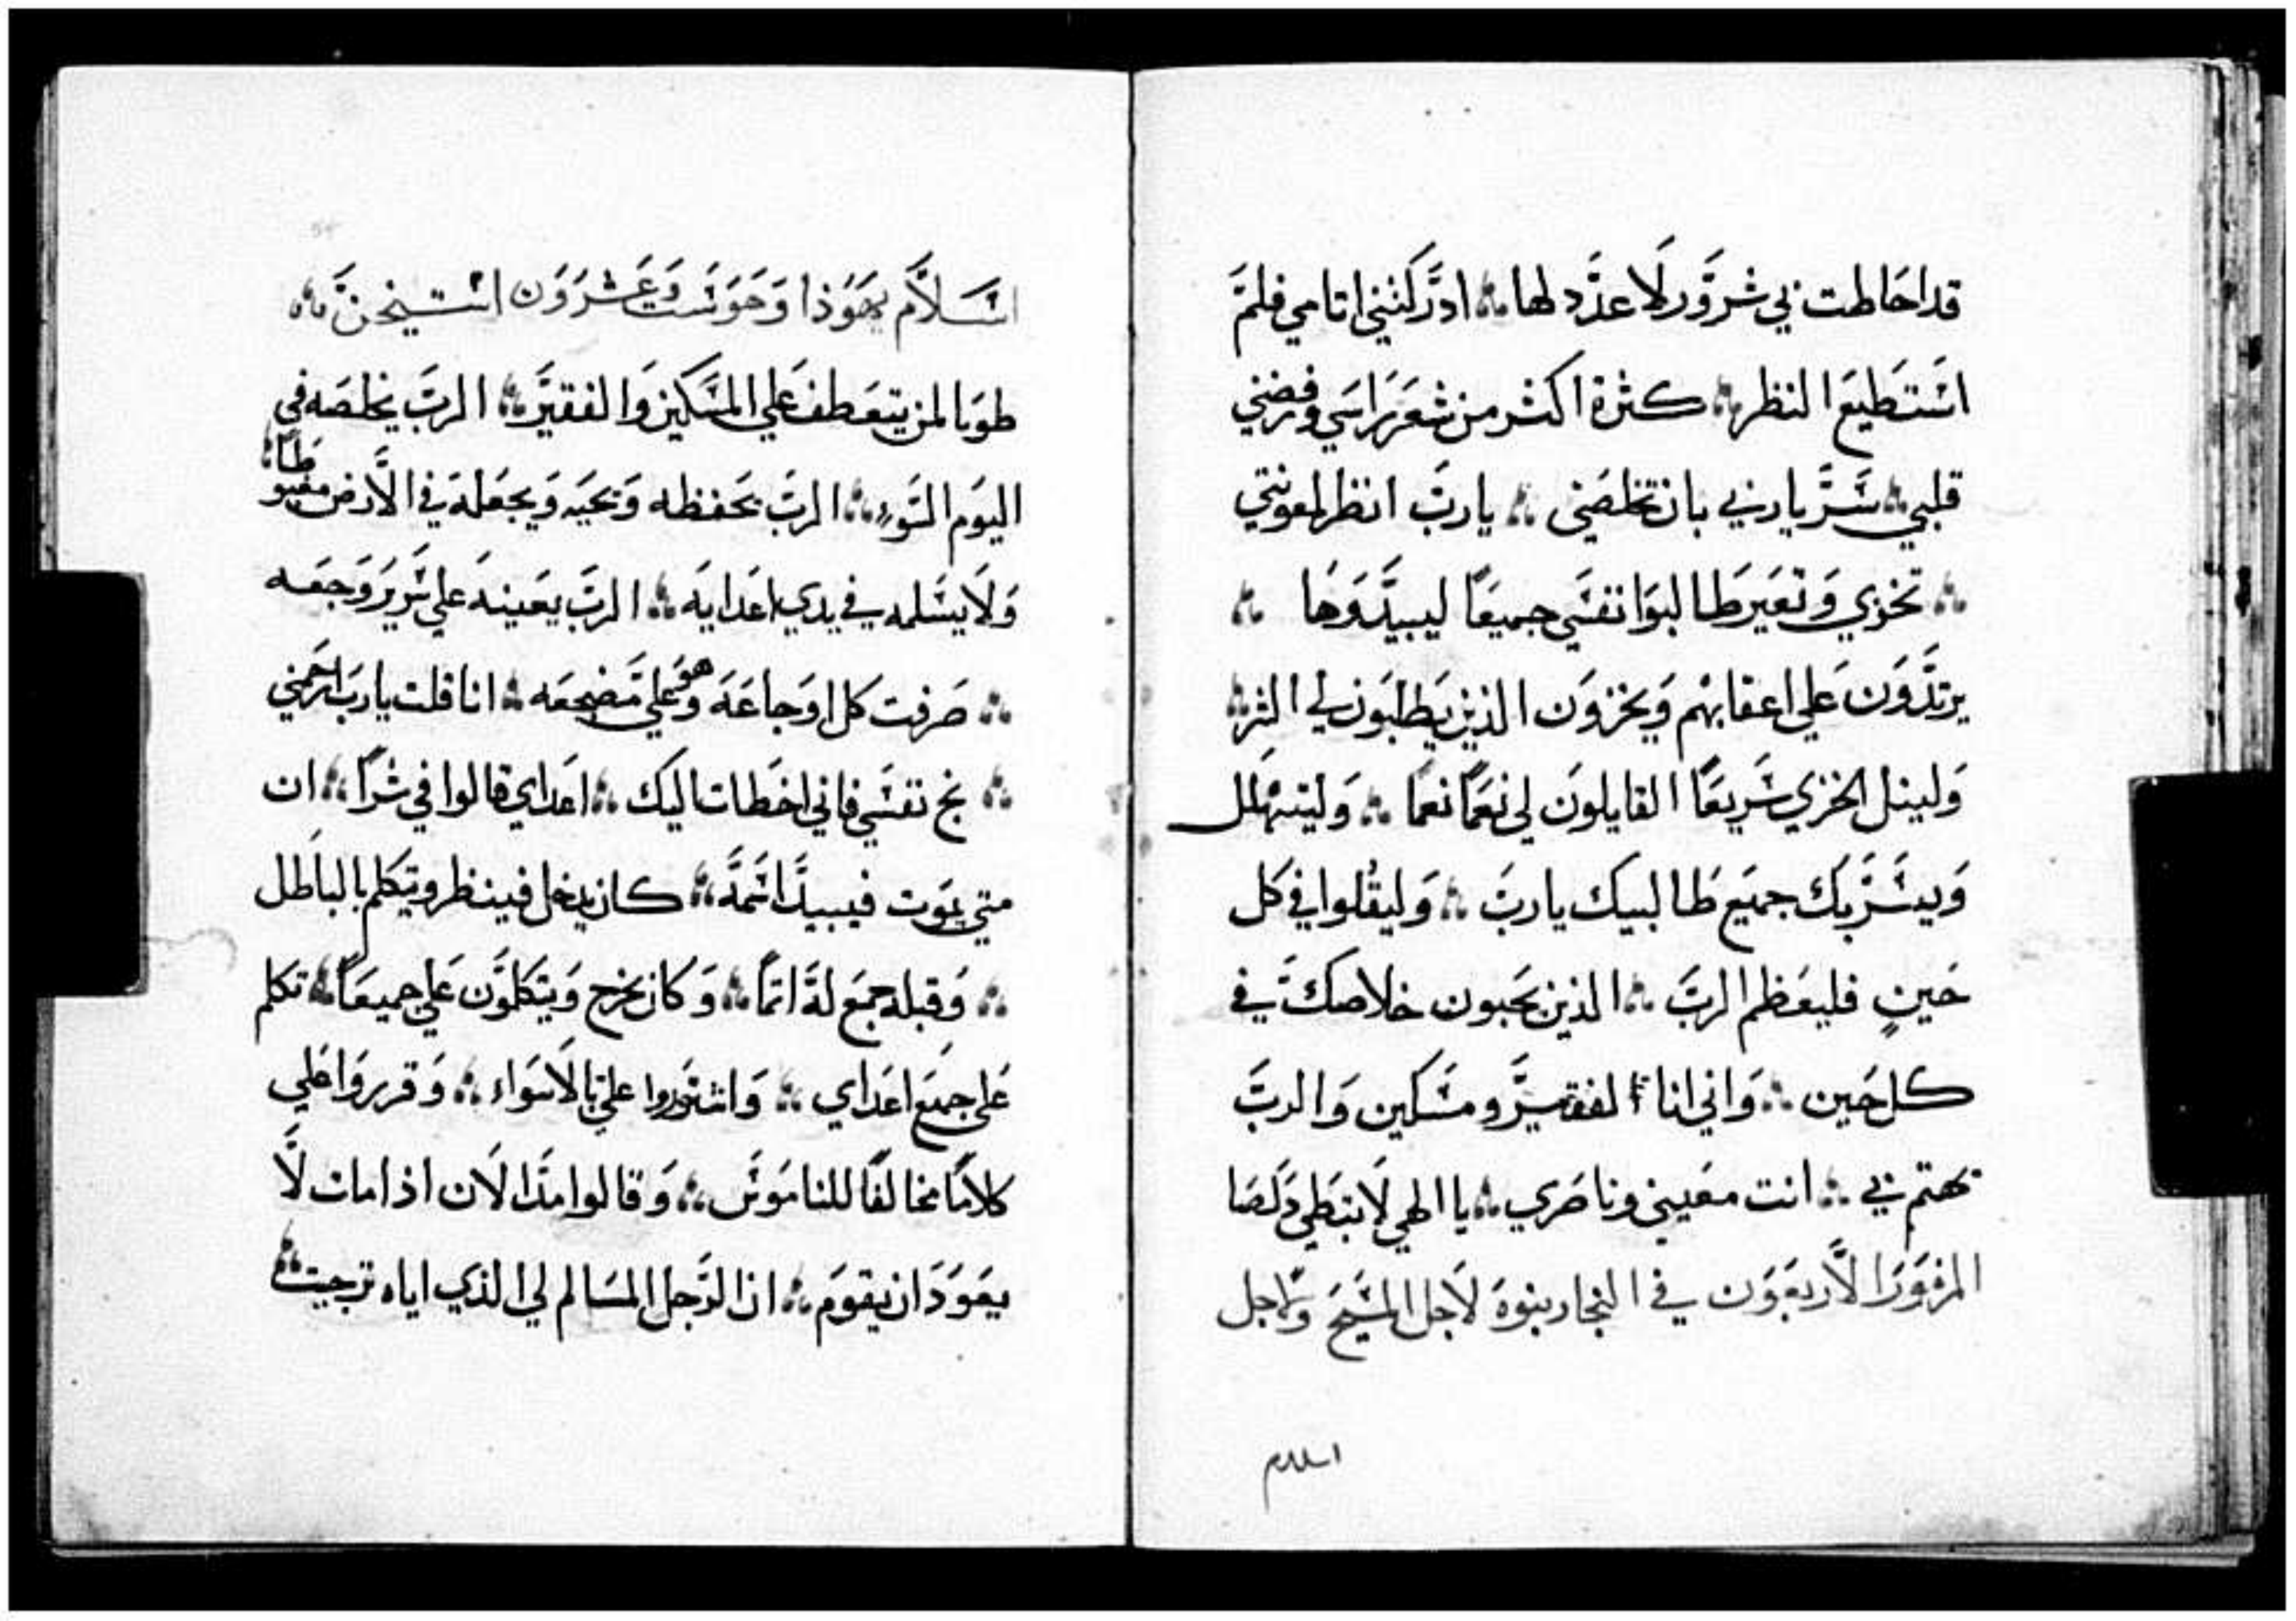 قد احَاطت بي شرَوَّر لَا عدَّد لها ∴ ادَّركتني اتامي فلمَ
اسَتطَيعَ النظر ∴ كثرة اكثر من شعَر رَاسَي ورفضني
قلبي ∴ سَّرَّ يا رب بي بان تخلصَني ∴ يا ربَ انظر لمعونتي
∴ تخزي وَتعَير طَالبوَا نفسَي جميعَاً ليبيدَّوَهَا ∴
يرتدَّوَن عَلي اعقابهْم وَيخزوَن الذين يَطلبَون لي الشر ∴
وَلينل الخزي سَريعَاً القايلوَن لي نعَمَاً نعمَاً ∴ وَليتهْلل
وَيسَّرَ بكَ جميَع طَالبيك يا ربَ ∴ وَليقُلوا في كَل
حَينٍ فليعَظم الربَ ∴ الذين يحَبون خلاصكَ في
كل حَين ∴ وَاني انا الفقيرَّ ومسَكين وَالربَ
يهتم بي ∴ انت معَيني وناصَري ∴ يا الهي لَا تبطَي خَلصَا
المزمَوَر الَاربعَوَن في النجار بنوة لَاجل المسَيحَ وَلاجل
اسلام
اسَلَام يهَوَذا وَحَوَسَت وَعَشرَوَن استيخنَ ∴
طوَبا لمن يتعَطف عَلي المسَكين وَالفقيرَ ∴ الربَ يخلصَه في
اليوَم السَوء ∴ الربَ يحَفظه وَيحَيَه وَيجعَله في الَارض مغبو
طَاً ∴
وَلَا يسَلمه في يدي اعَدايَه ∴ الربَ يعَينهَ علي سَرير وَجعَه
∴ صَرفت كَل اوَجاعَهَ وَهوَ علي مَضجعَه ∴ انا قلت يا ربَ ارحَمني
∴ نج نفسَي فاني اخطَات اليك ∴ اعَداي قالوا في شراً ∴ ان
متي يموَت فيبيدَ اسَمهَ ∴ كان يدخل فينظر ويتكلم بالباطَل
∴ وَقبله جمَع لهَ اثماً ∴ وَكان يخرج وَيتكلوَن عَلي جميعَاً ∴ تكلم
عَلي جميَع اعَداي ∴ وَاشتوَروا علي بالَاسَواء ∴ وَقرروَا علي
كلامَاً مخالفَاً للنامَوسَ ∴ وَقالوا هذَا الَان اذا مات لَا
يعَوَدَ ان يقوَم ∴ ان الرَجل المسَالم لي الذي اياه ترجيت ∴